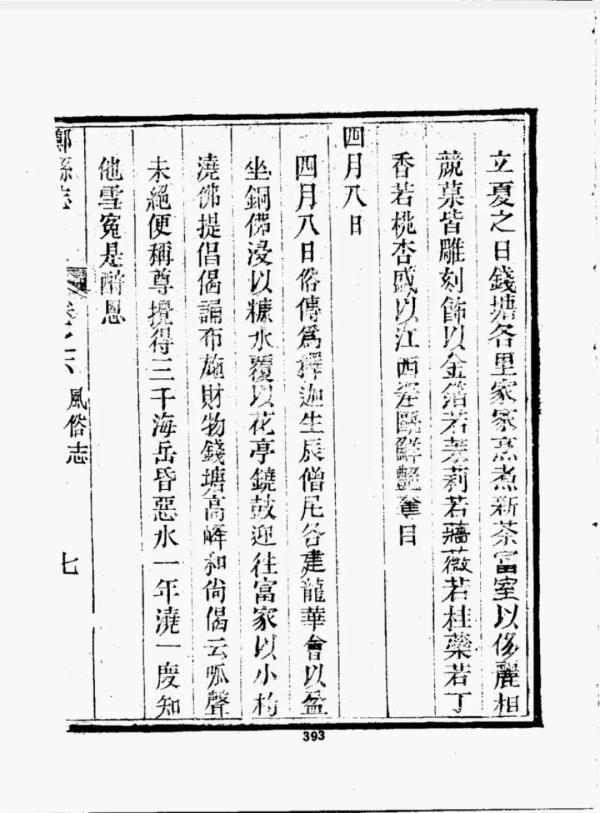 立夏之日錢塘各里家家烹煮新茶富室以侈麗相
競菓皆雕刻飾以金箔若茉莉若薔薇若桂蘂若丁
香若桃杏盛以江西瓷甌鮮艷奪目
四月八日
四月八日俗傳爲釋迦生辰僧尼各建龍華會以盆
坐銅佛浸以糖水覆以花亭鐃鼓迎往富家以小杓
澆佛提倡偈誦布施財物錢塘高峰和尚偈云呱聲
未絕便稱尊攪得三千海岳昏惡水一年澆一度知
他雪冤是酧恩
縣志
卷之六 風俗志
七
393